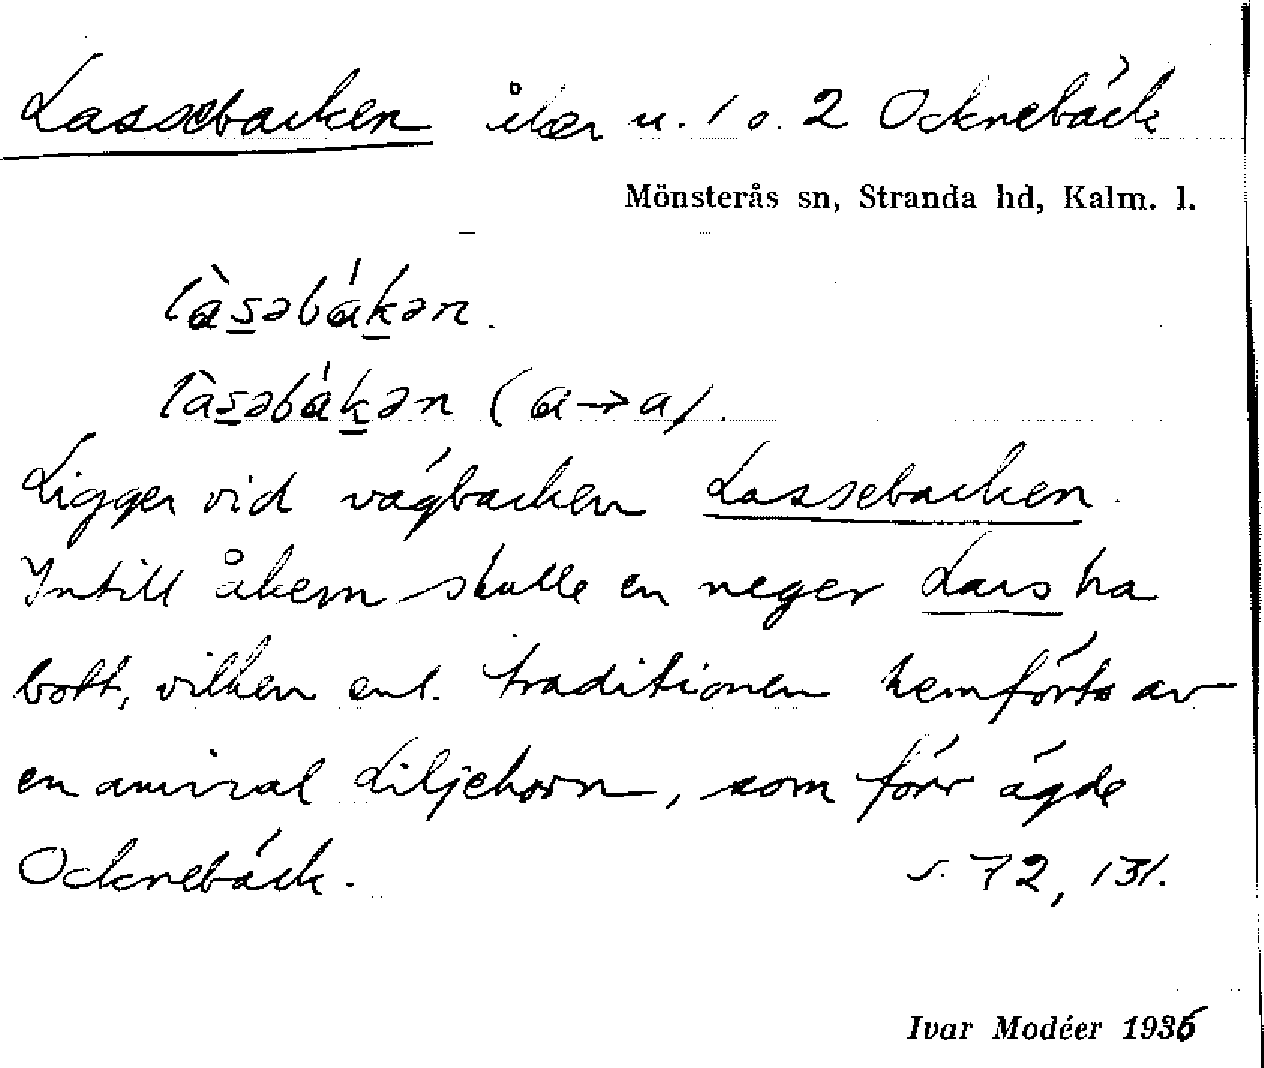 Lassebacken åker u. 1 o. 2 Ocknebäck
Mönsterås sn, Stranda hd, Kalm. l.
làsəbákən.
làsəbákən (ɑ→a).
Ligger vid vägbacken Lassebacken.
Intill åkern skulle en neger Lars ha
bott, vilken enl. traditionen hemförts av
en amiral Liljehorn, som förr ägde
Ocknebäck. s. 72, 131.
Ivar Modéer 1936